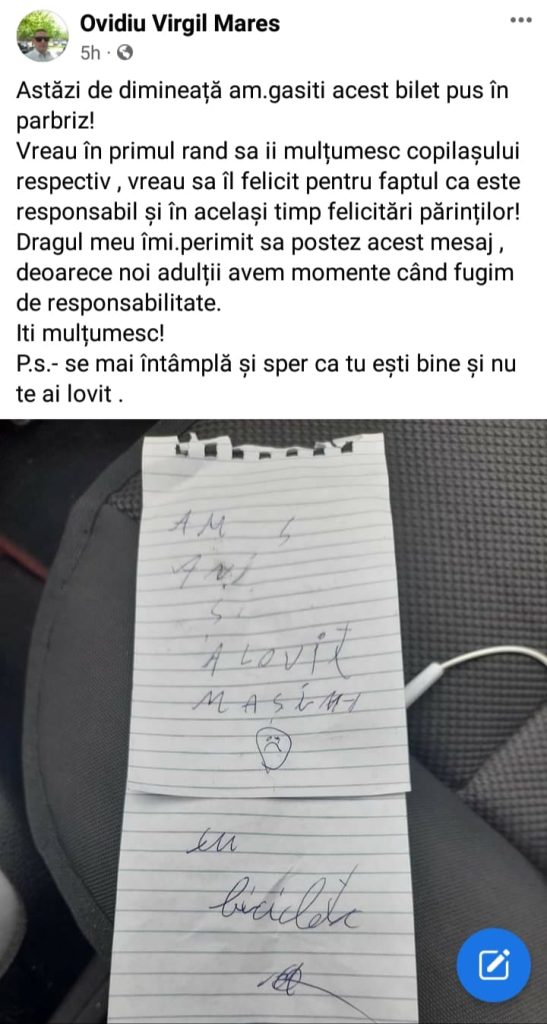 Ovidiu Virgil Mares
5h
Astăzi de dimineață am.gasiti acest bilet pus în
parbriz!
Vreau în primul rand sa ii mulțumesc copilașului
respectiv , vreau sa îl felicit pentru faptul ca este
responsabil și în același timp felicitări părinților!
Dragul meu îmi.perimit sa postez acest mesaj ,
deoarece noi adulții avem momente când fugim
de responsabilitate.
Iti mulțumesc!
P.s.- se mai întâmplă și sper ca tu ești bine și nu
te ai lovit .
AM 5
ANI
ȘI
ALOVIT
MAȘINA
cu
bicicleta